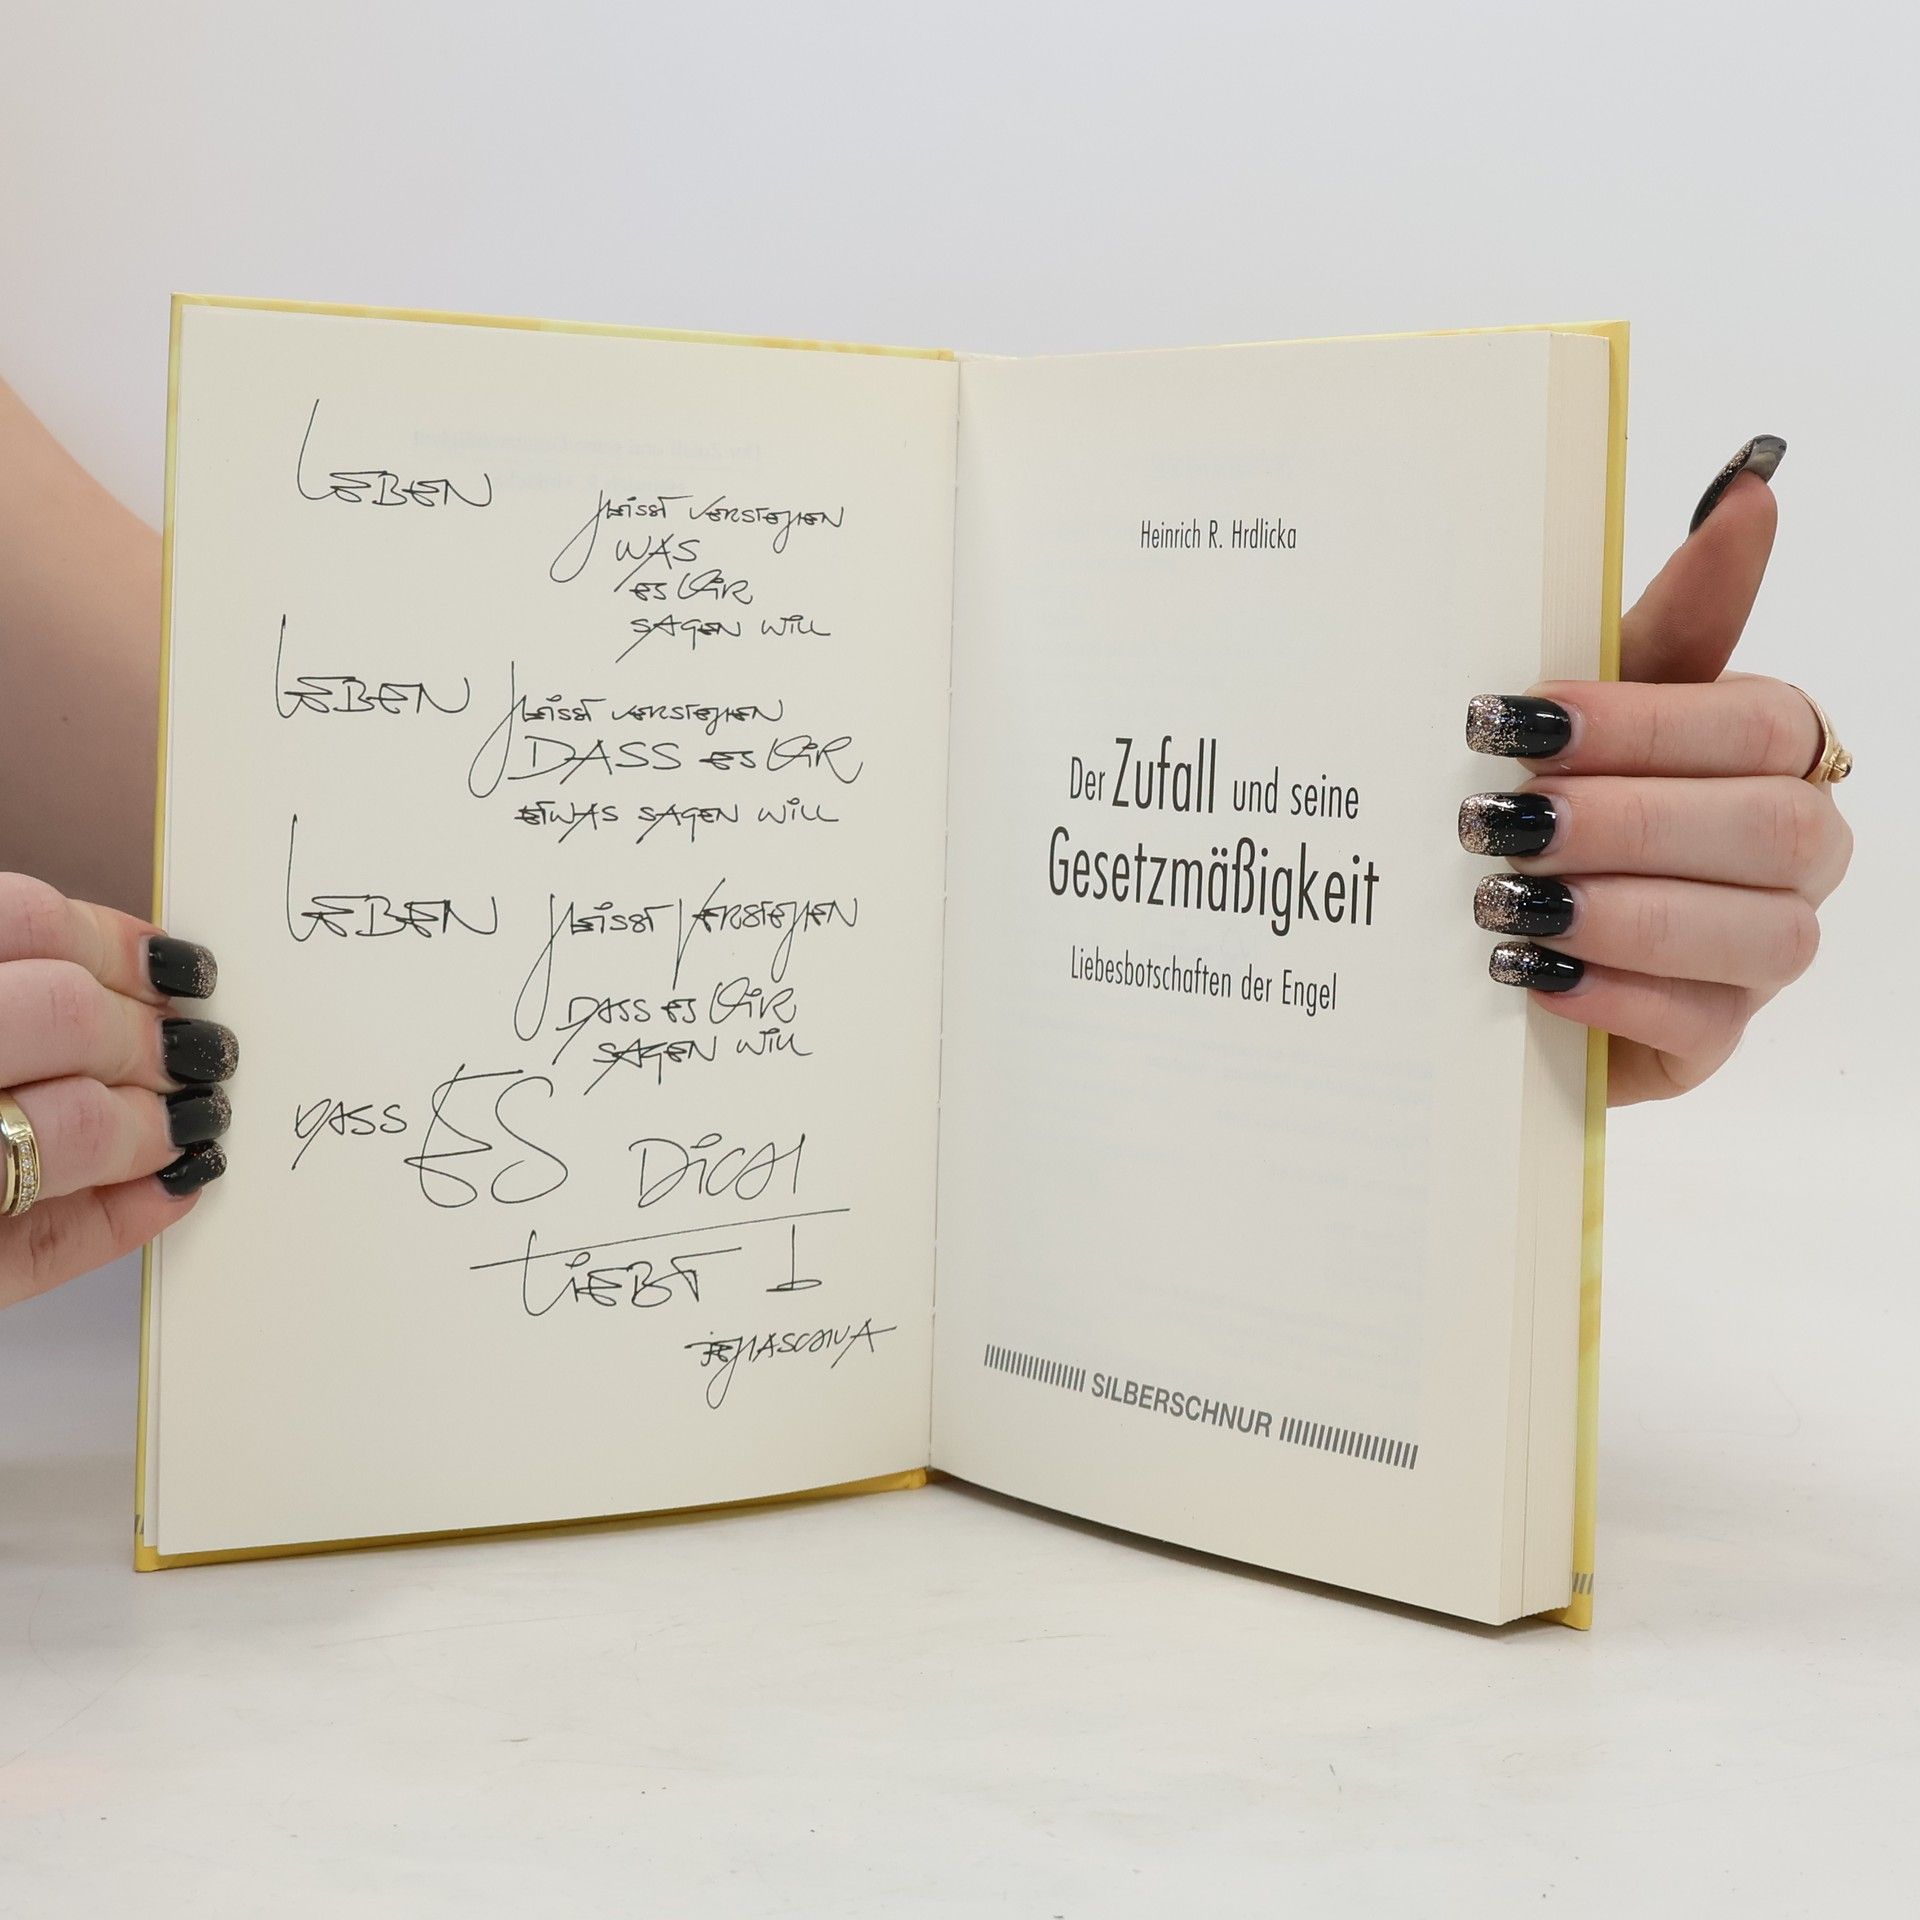 LEBEN HEISST VERSTEHEN
WAS
ES DIR
SAGEN WILL
LEBEN HEISST VERSTEHEN
DASS ES DIR
ETWAS SAGEN WILL
LEBEN HEISST VERSTEHEN
DASS ES DIR
SAGEN WILL
DASS ES DICH
LIEBT!
JEHASCHUA
Heinrich R. Hrdlicka
Der Zufall und seine
Gesetzmäßigkeit
Liebesbotschaften der Engel
SILBERSCHNUR